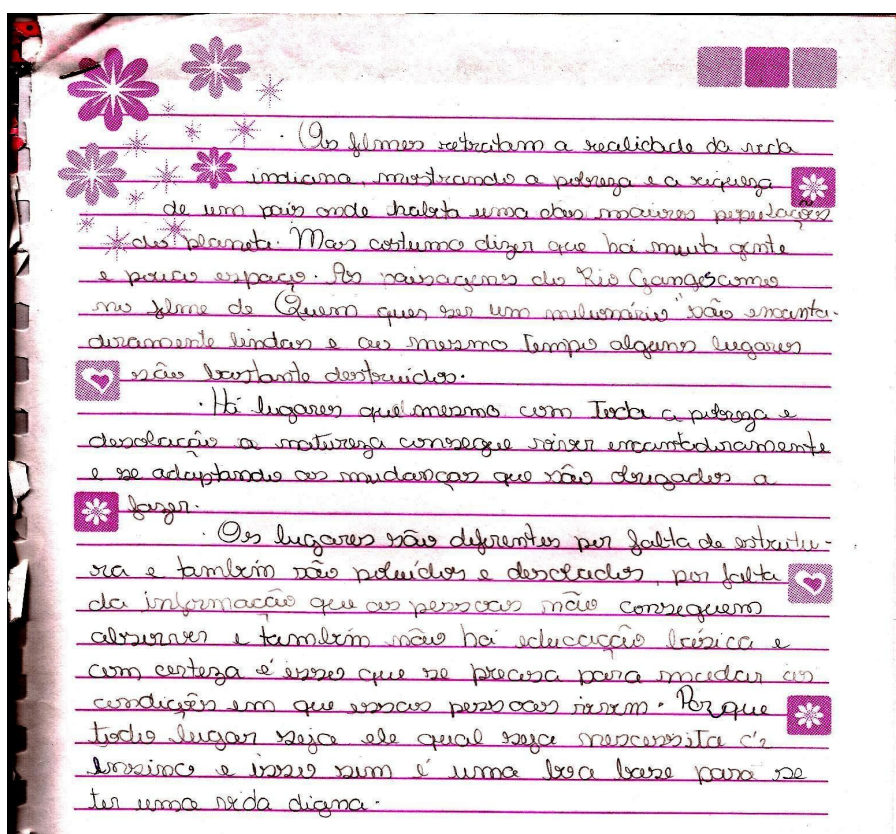 . Os filmes retratam a realidade da vida
indiana, mostrando a pobreza e a riqueza
de um país onde habita uma das maiores populações
do planeta. Mas costumo dizer que há muita gente
e pouco espaço. As paisagens do Rio Ganges como
no filme de Quem quer ser um milionário" são encanta-
doramente lindas e ao mesmo tempo alguns lugares
são bastante destruídos.
. Há lugares que mesmo com toda a pobreza e
desolacção a natureza consegue viver encantadoramente
e se adaptando as mudanças que são obrigados a
fazer.
. Os lugares são diferentes por falta de estrutu-
ra e também são poluídos e desolados, por falta
da informação que as pessoas não conseguem
absorver e também não há educacção básica e
com certeza é isso que se precisa para mudar as
condições em que essas pessoas vivem. Porque
todo lugar seja ele qual seja nescessita de
ensino e isso sim é uma boa base para se
ter uma vida digna.